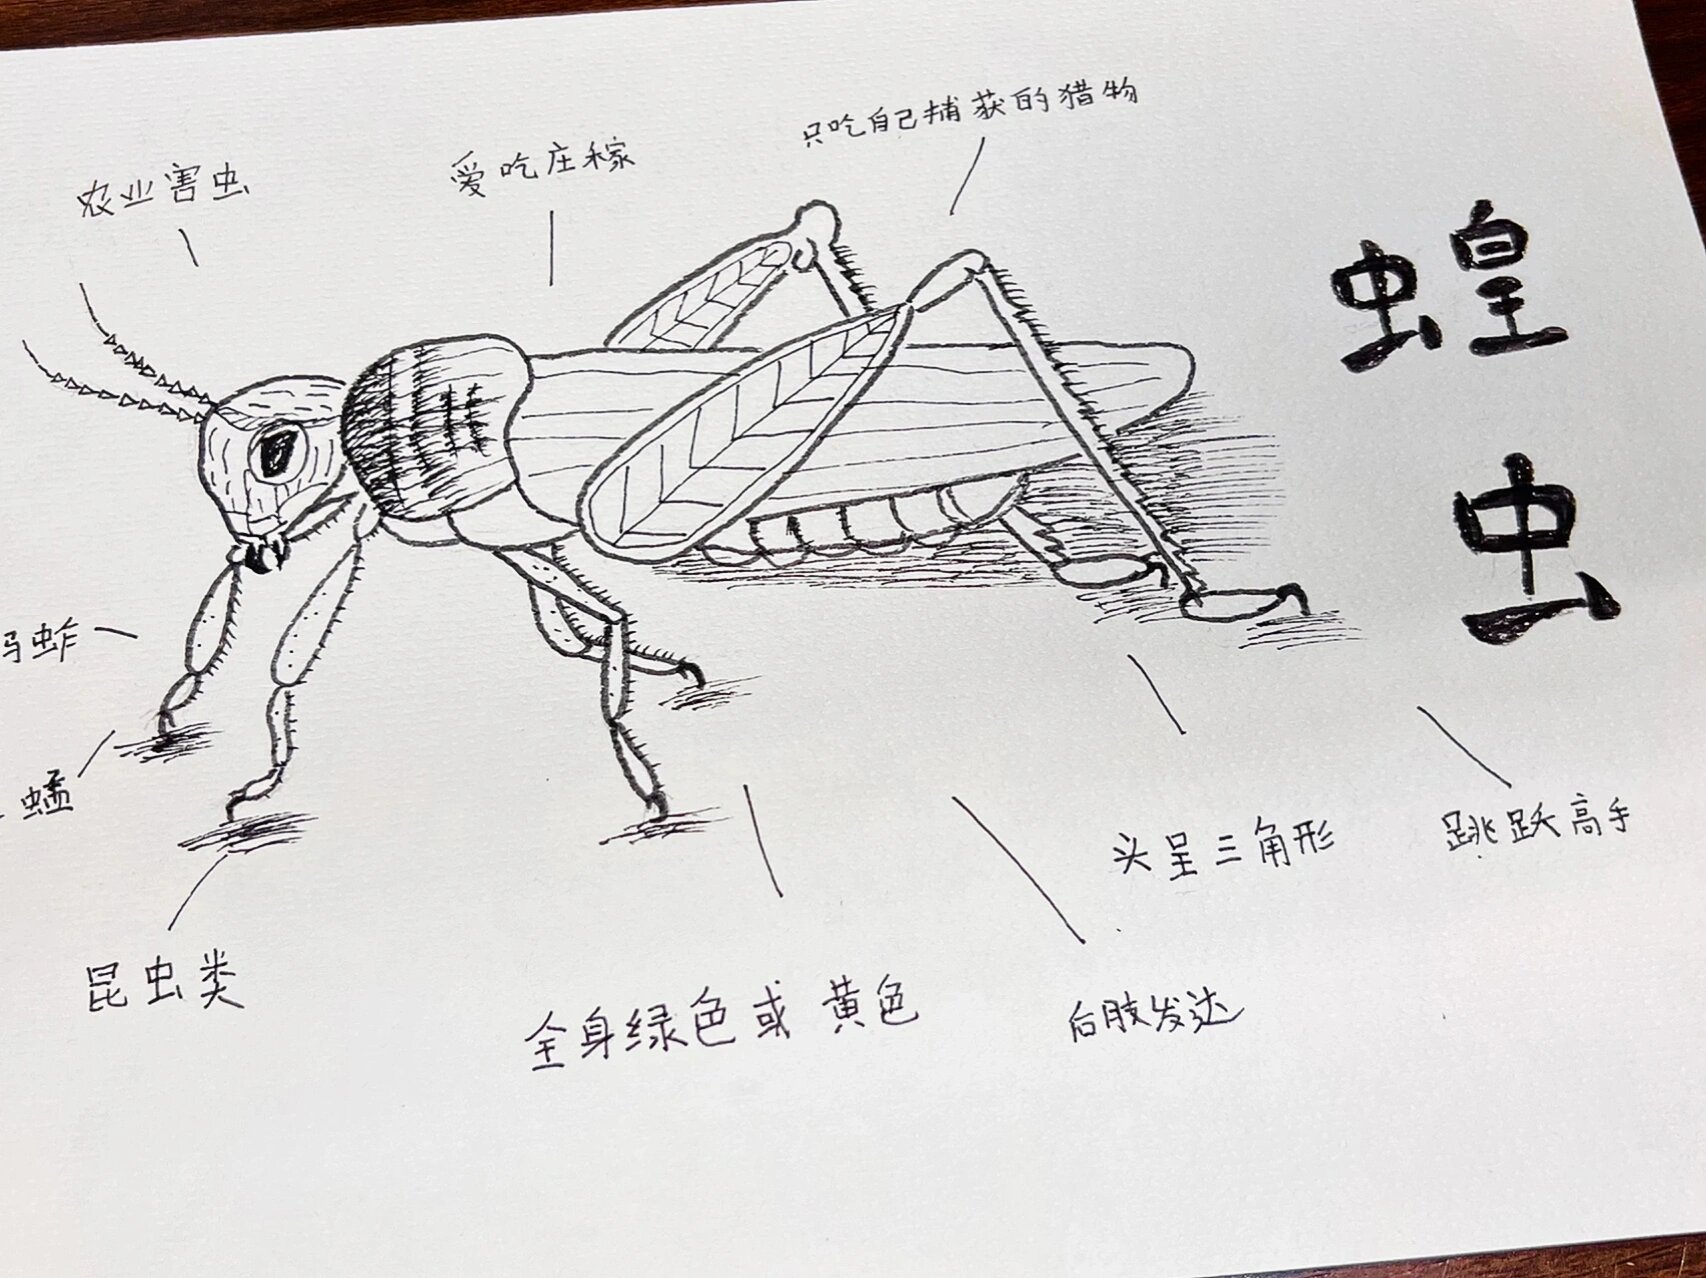 只吃自己捕获的猎物
爱吃庄稼
农业害虫
蝗虫
蚂蚱
蜢
头呈三角形
跳跃高手
昆虫类
全身绿色或黄色
后肢发达